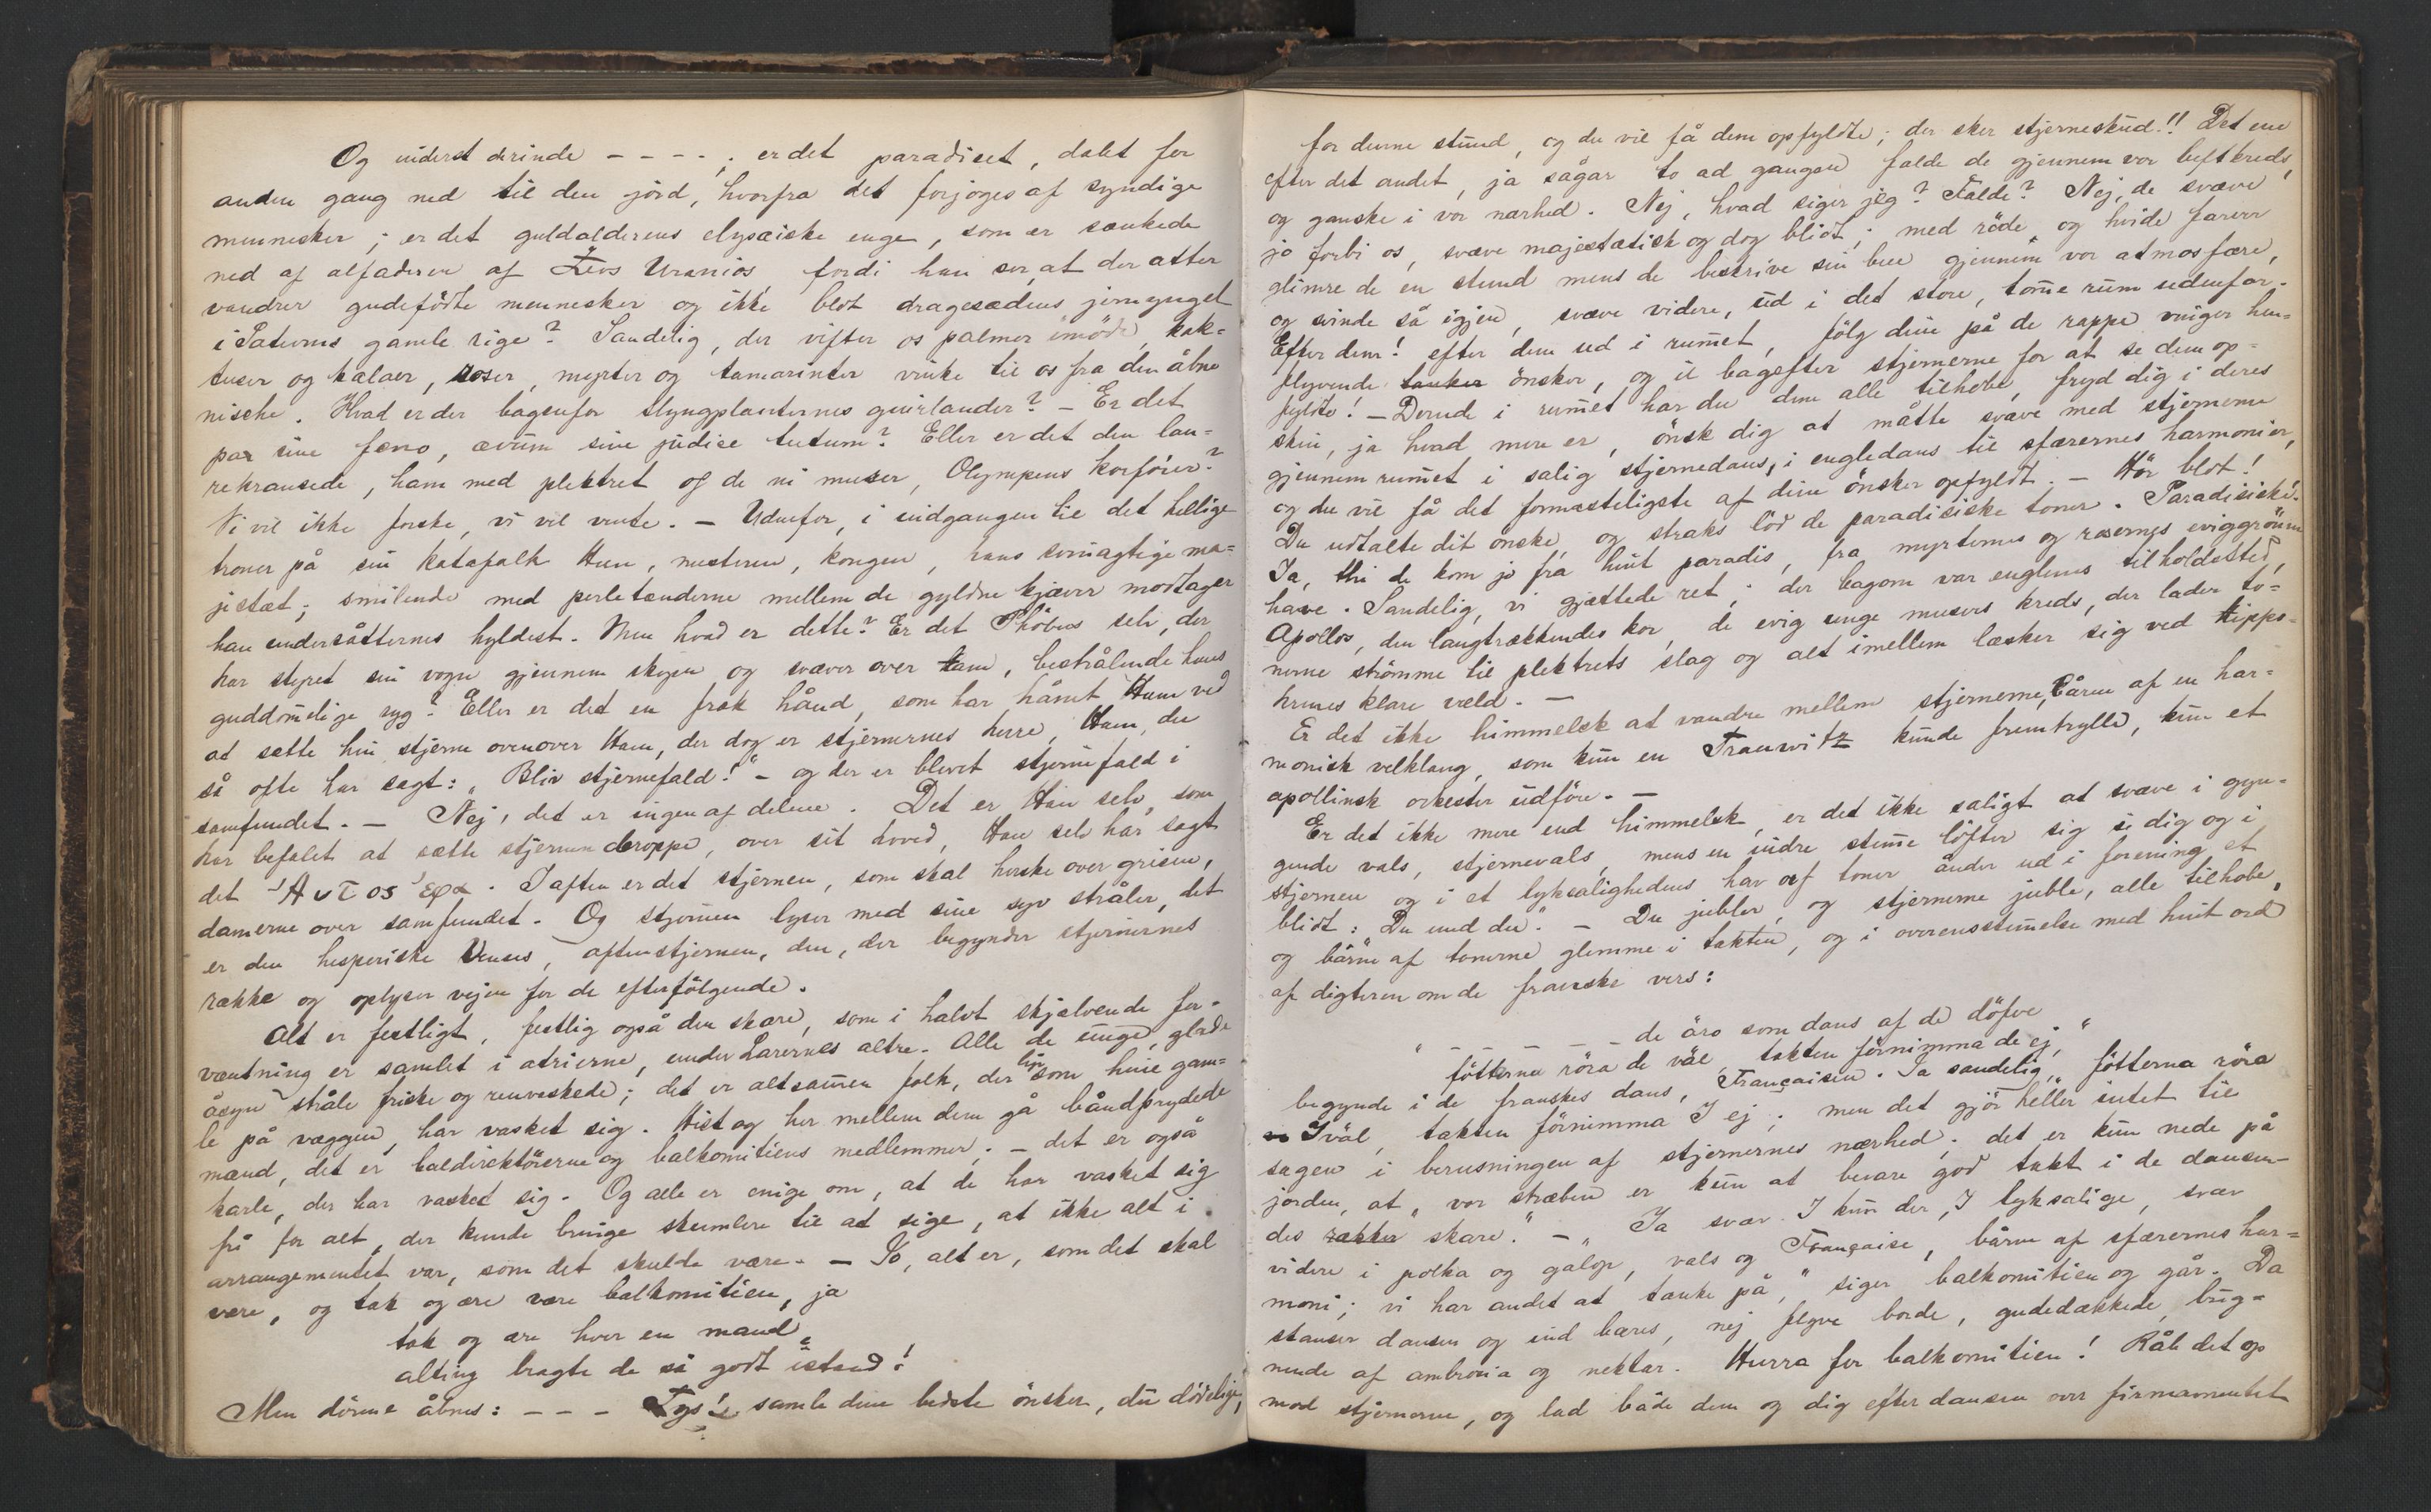 Og inderst derinde - - - -; er det paradiset, dalet for
anden gang ned til den jord, hvorfra det forjoges af syndige
mennesker; er det guldalderens elysæiske enge, som er sænkede
ned af alfaderen af Zevs Uranios fordi han ser, at der atter
vandrer gudefödte mennesker og ikke blot dragesædens jernyngel
i Saturns gamle rige? Sandelig, der vifter os palmer imöde, kak-
tuser og kalaer, roser, myrter og tamarinter vinke til os fra den åbne
nische. Hvad er der bagenfor slyngplanternes guirlander? - Er det
par sine fæno, ævum sine judice tutum? Eller er det den lau-
rekransede, ham med plektret og de ni muser, Olympens korförer?
Vi vil ikke forske, vi vil vente. - Udenfor, i indgangen til det hellige
troner på sin katafalk Hun, mesteren, kongen, hans svinagtige ma-
jestæt; smilende med perletænderne mellem de gyldne kjæver modtager
han undersåtternes hyldest. Men hvad er dette? Er det Phöbus selv, der
har styret sin vogn gjennem skyen og svæver over ham, bestrålende hans
guddommelige ryg? Eller er det en fræk hånd, som har hånet Ham ved
at sætte hin stjerne ovenover Ham, der dog er stjernernes herre, Ham, der
så ofte har sagt: "Bliv stjernefald!" - og der er blevet stjernefald i
samfundet. - Nej, det er ingen af delene. Det er Han selv, som
har befalet at sætte stjernen deroppe, over sit hoved, Han selv har sagt
det Αυτος εφα. I aften er det stjernen, som skal herske over grisene,
damerne over samfundet. Og stjernen lyser med sine syv stråler, det
er den hesperiske Venus, aftenstjernen, den, der begynder stjernernes
række og oplyser vejen for de efterfölgende.
Alt er festligt, festlig også den skare, som i halvt skjælvende for-
ventning er samlet i atrierne, under Larernes altre. Alle de unge, glade
åsyn stråle friske og renvaskede; det er altsammen folk, der ligesom hine gam-
le på væggen, har vasket sig. Hist og her mellem dem gå båndprydede
mænd, det er baldirektörerne og balkomitéens medlemmer; - det er også
karle, der har vasket sig. Og alle er enige om, at de har vasket sig
fri for alt, der kunde bringe skumlere til at sige, at ikke alt i
arrangementet var, som det skulde være. - Jo, alt er, som det skal
være, og tak og ære være balkomitéen, ja
tak og ære hver en mand,
alting bragte de så godt istand!
Men dörene åbnes: - - - Tys! samle dine bedste önsker, du dödelige,
for denne stund, og du vil få dem opfyldte; der sker stjerneskud!! Det ene
efter det andet, ja sågar to ad gangen falde de gjennem vor luftkreds,
og ganske i vor nærhed. Nej, hvad siger jeg? Falde? Nej, de svæve
jo forbi os, svæve majestætisk og dog blidt; med röde og hvide farver
glimre de en stund mens de beskrive sin bue gjennem vor atmosfære,
og svinde så igjen, svæve videre, ud i det store, tomme rum udenfor.
Efter dem! efter dem ud i rummet, fölg dem på de rappe vinger hen-
flyvende tanker önsker, og il bagefter stjernerne for at se dem op-
fyldte! - Derude i rummet har du dem alle tilhobe, fryd dig i deres
skin, ja hvad mere er, önsk dig at måtte svæve med stjernerne
gjennem rummet i salig stjernedans, i engledans til sfærernes harmonier,
og du vil få det formasteligste af dine önsker opfyldt. - Hör blot!
Du udtalte dit önske, og straks löd de paradisiske toner. Paradisiske?
Ja, thi de kom jo fra hint paradis, fra myrternes og rosernes eviggrönne
have. Sandelig, vi gjættede ret; der bagom var englenes tilholdssted,
Apollos, den langtrækkendes kor, de evig unge musers kreds, der lader to-
nerne strömme til plektrets slag og alt imellem læsker sig ved Hippo-
krenes klare væld. -
Er det ikke himmelsk at vandre mellem stjernerne, båren af en har-
monisk velklang, som kun en Trauwitz kunde fremtrylle, kun et
apollinsk orkester udföre. -
Er det ikke mere end himmelsk, er det ikke saligt at svæve i gyn-
gende vals, stjernevals, mens en indre stemme löfter sig i dig og i
stjernen og i et lyksalighedens hav af toner ånder ud i forening et
blidt: "Du und du". - Du jubler, og stjernerne juble, alle tilhobe,
og bårne af tonerne glemme i takten, og i overensstemmelse med hint ord
af digteren om de franske vers:
" - - - - - de äro som dans af de döfve
fötterna röra de väl, takten förnimma de ej,"
begynde i de franskes dans, Françaisen. Ja sandelig, "fötterna röra
I väl, takten förnimma I ej; men det gjör heller intet til
sagen i berusningen af stjernernes nærhed; det er kun nede på
jorden, at "vor stræben er kun at bevare god takt i de dansen-
des rækker skare." - "Ja svæv I kun der, I lyksalige, svæv
videre i polka og galop, vals og Française, bårne af sfærernes har-
moni; vi har andet at tænke på," siger balkomitéen og går. Da
stanser dansen og ind bæres, nej flyve borde, gudedækkede, bug-
nende af ambrosia og nektar. Hurra for balkomitéen! Råb det op
mod stjernerne, og lad både dem og dig efter dansen over firmamentet